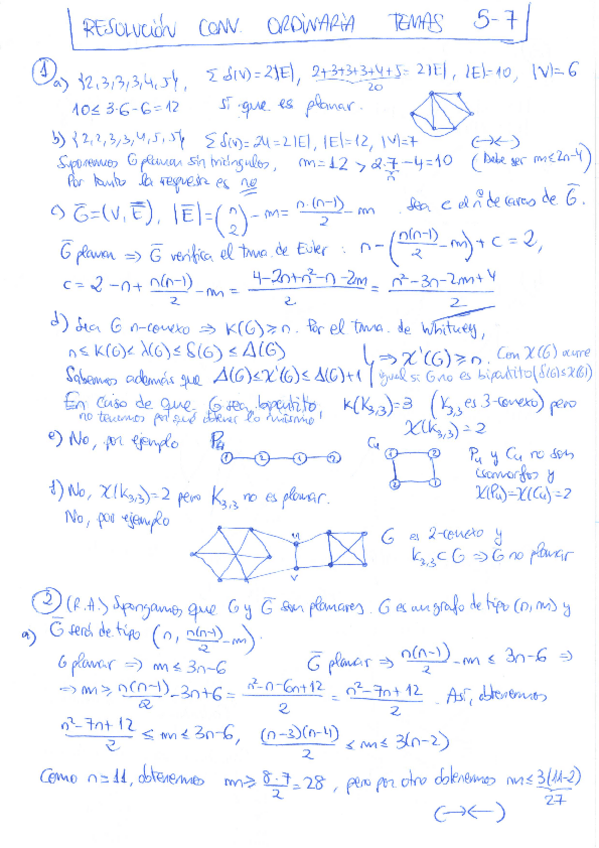 RESOLUCIÓN CONV. ORDINARIA TEMAS 5-7
① a) {2,3,3,3,4,5}, Σ δ(V)=2|E|, 2+3+3+3+4+5=2|E|, |E|=10, |V|=6
20
10≤3·6-6=12 Sí que es planar.
b) {2,2,3,3,4,5,5} Σ δ(V)=24=2|E|, |E|=12, |V|=7 (→←)
Suponemos G planar sin triángulos, m=12 > 2·7-4=10 (Debe ser m≤2n-4)
n
Por tanto la respuesta es no
c) G̅=(V,E̅), |E̅|=(n 2)-m= n·(n-1)/2 -m. Sea c el nº de caras de G̅.
G̅ planar ⇒ G̅ verifica el Tma. de Euler: n-(n(n-1)/2 -m)+c=2,
c=2-n+ n(n-1)/2 -m= (4-2n+n²-n-2m)/2 = (n²-3n-2m+4)/2
d) Sea G n-conexo ⇒ K(G)≥n. Por el Tma. de Whitney,
n≤K(G)≤λ(G)≤δ(G)≤Δ(G) ⇒ χ'(G)≥n. Con χ(G) ocurre
Sabemos además que Δ(G)≤χ'(G)≤Δ(G)+1 igual si G no es bipartito (δ(G)≤χ(G))
En caso de que G sea bipartito, K(K3,3)=3 (K3,3 es 3-conexo) pero
no tenemos por qué obtener lo mismo, χ(K3,3)=2
e) No, por ejemplo P4 C4 P4 y C4 no son
1 2 1 2 isomorfos y
χ(P4)=χ(C4)=2
f) No, χ(K3,3)=2 pero K3,3 no es planar.
No, por ejemplo
u G es 2-conexo y
v K3,3 ⊂ G ⇒ G no planar
② (R.A.) Supongamos que G y G̅ son planares. G es un grafo de tipo (n,m) y
a) G̅ será de tipo (n, n(n-1)/2 -m).
G planar ⇒ m≤3n-6 G̅ planar ⇒ n(n-1)/2 -m ≤ 3n-6 ⇒
⇒ m≥ n(n-1)/2 -3n+6= (n²-n-6n+12)/2 = (n²-7n+12)/2. Así, obtenemos
(n²-7n+12)/2 ≤ m ≤ 3n-6, (n-3)(n-4)/2 ≤ m ≤ 3(n-2)
Como n=11, obtenemos m≥ 8·7/2 =28, pero por otro obtenemos m≤3(11-2)
27
(→←)